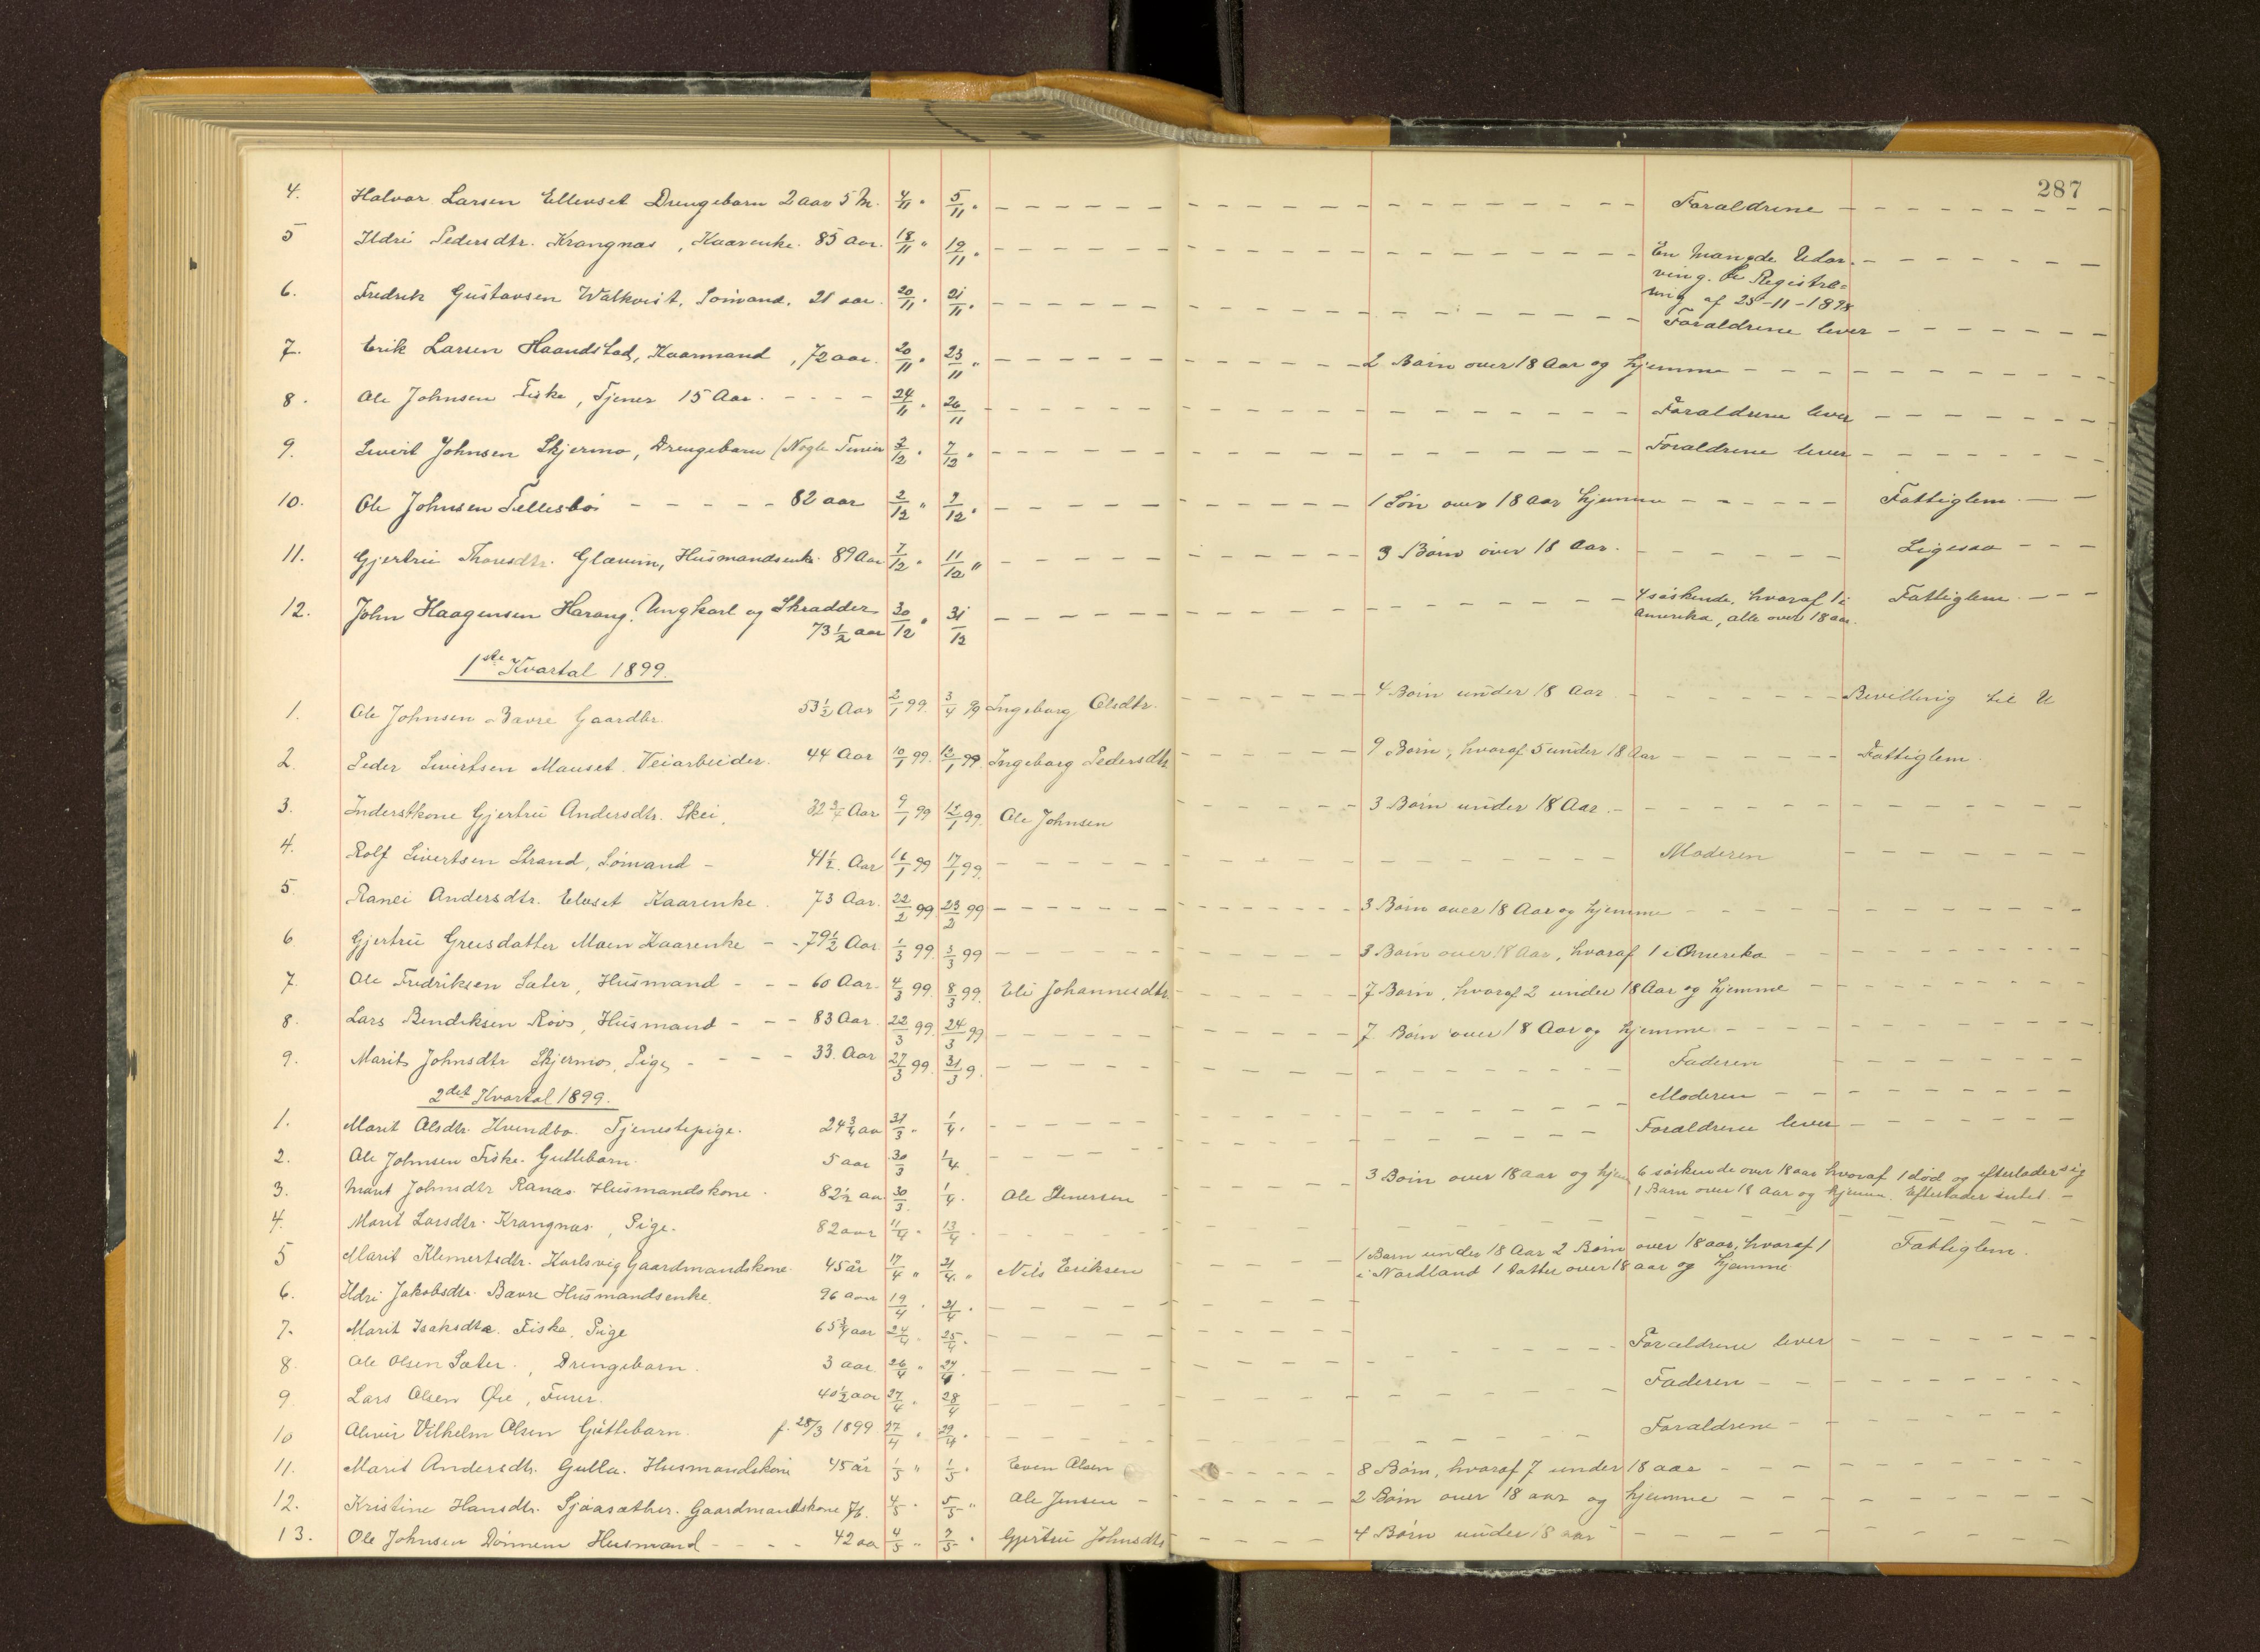 287
4. Halvor Larsen Ellevset Drengebarn 2 aar 5 M. 4/11 " 5/11 " Forældrene
5 Ildri Pedersdtr. Krangnæs, Kaarenke. 85 Aar. 18/11 " 19/11 " En Mængde Udar-
ving. Se Registre=
ring af 25-11-1898
6. Fredrik Gustavsen Walkvist, Sømand. 21 aar. 20/11 " 21/11 " Forældrene lever
7. Erik Larsen Haandstad, Kaarmand, 72 aar. 20/11 " 23/11 " 2 Børn over 18 Aar og hjemme
8. Ole Johnsen Fiske, Tjener 15 Aar. 24/11 " 26/11 Forældrene lever
9. Sivert Johnsen Skjermo, Drengebarn (Nogle Timer 3/12 " 7/12 " Forældrene lever
10. Ole Johnsen Tellesbø 82 aar 2/12 " 9/12 " 1 Søn over 18 aar hjemme Fattiglem.
11. Gjertru Thoresdtr. Glærum, Husmandsenke. 89 Aar 7/12 " 11/12 " 3 Børn over 18 Aar. Ligesaa
12. John Haagensen Harang. Ungkarl og Skrædder 30/12 " 31/12 4 søskende, hvoraf 1 i Fattiglem.
73 1/2 aar Amerika, alle over 18 aar.
1ste Kvartal 1899.
1. Ole Johnsen Bævre Gaardbr. 53 1/2 Aar 2/1 99. 3/4 99 Ingeborg Olsdtr. 4 Børn under 18 Aar Bevilling til U
2. Peder Sivertsen Mauset. Veiarbeider. 44 Aar 10/1 99. 12/1 99. Ingeborg Pedersdtr 9 Børn, hvoraf 5 under 18 Aar Fattiglem.
3. Inderstkone Gjertru Andersdtr. Skei, 32 3/4 Aar 9/1 99 15/1 99. Ole Johnsen 3 Børn under 18 Aar.
4. Rolf Sivertsen Strand, Sømand 41 1/2. Aar 16/1 99 17/1 99. Moderen
5. Ranei Andersdtr. Elvset Kaarenke. 73 Aar. 22/2 99 23/2 99 3 Børn over 18 Aar og hjemme
6 Gjertru Greisdatter Moen Kaarenke 79 1/2 Aar 1/3 99. 3/3 99 3 Børn over 18 Aar, hvoraf 1 i Amerika
7. Ole Fredriksen Sæter, Husmand 60 Aar. 4/3 99. 8/3 99. Eli Johannesdtr. 7 Børn, hvoraf 2 under 18 Aar og hjemme
8. Lars Bendiksen Røvs, Husmand 83 Aar. 22/3 99. 24/3 99 7 Børn over 18 Aar og hjemme
9. Marit Johnsdtr Skjermo, Pige, 33. Aar 27/3 99. 31/3 9. Faderen
2det Kvartal 1899.
1. Marit Olsdtr. Kvendbø. Tjenestepige. 24 3/4 aar 31/3 " 1/4 " Moderen
2. Ole Johnsen Fiske. Guttebarn. 5 aar 30/3 1/4 Forældrene lever
3. Marit Johnsdtr Ranæs. Husmandskone. 82 1/2 aar 30/3 1/4. Ole Stenersen 3 Børn over 18 aar og hjem
4. Marit Larsdtr. Krangnæs, Pige. 82 aar 11/4 " 13/4 " 6 søskende over 18 aar hvoraf 1 død og efterlader sig
1 Barn over 18 Aar og hjemme. Efterlader intet.
5 Marit Klemertsdtr. Karlsvig Gaardmandskone. 45 år 17/4 " 21/4. " Nils Eriksen
6. Ildri Jakobsdtr. Bævre Husmandsenke. 96 aar 19/4 " 21/4 " 1 Barn under 18 Aar 2 Børn over 18 aar, hvoraf 1 Fattiglem.
i Nordland 1 datter over 18 aar og hjemme
7. Marit Isaksdtr. Fiske. Pige 65 3/4 aar 24/4 " 25/4 "
8. Ole Olsen Sæter., Drengebarn. 3 aar 26/4 " 27/4 " Forældrene lever
9 Lars Olsen Øie, Furer. 40 1/2 aar 27/4 " 28/4 Faderen
10 Alivir Vilhelm Olsen Guttebarn. f. 28/3 1899. 27/4 " 29/4 " Forældrene
11. Marit Andersdtr. Gulla. Husmandskone 45 år 1/5 " 1/5 " Even Olsen 8 Børn, hvoraf 7 under 18 aar
12. Kristine Hansdtr. Sjøasæther. Gaardmandskone 76. 4/5 " 5/5 " Ole Jensen 2 Børn over 18 aar og hjemme
13. Ole Johnsen Dønnem Husmand 42 aa 4/5 " 9/5 " Gjertru Johnsdtr 4 Børn under 18 aar